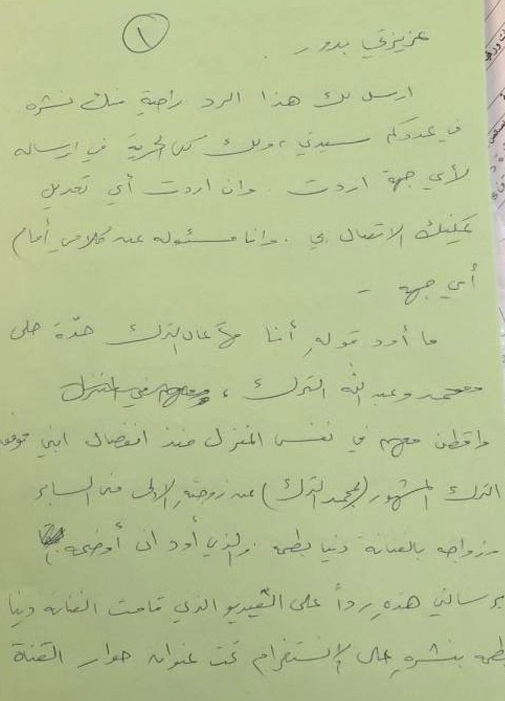 ١
عزيزتي بدور.
ارسل لك هذا الرد راجية منك نشره
في عددكم سيدتي، ولك كل الحرية في ارساله
لأي جهة اردت. وان اردت أي تعديل
يمكنك الاتصال بي. وانا مسئوله عن كلامي أمام
أي جهه -
ما أود قوله أنا الترك جدّة حلى
محمد وعبد الله الترك،
واقطن معهم في نفس المنزل منذ انفصال ابني
الترك المشهور (بمحمد الترك) عن زوجته الاولى السابر
زواجه بالفنانة دنيا بطمه والذي أود ان أوضحه
برسالتي هذه رداً على الفيديو الذي قامت الفنانه دنيا
بطمه بنشره على الإنستغرام تحت عنوان حوار القناة